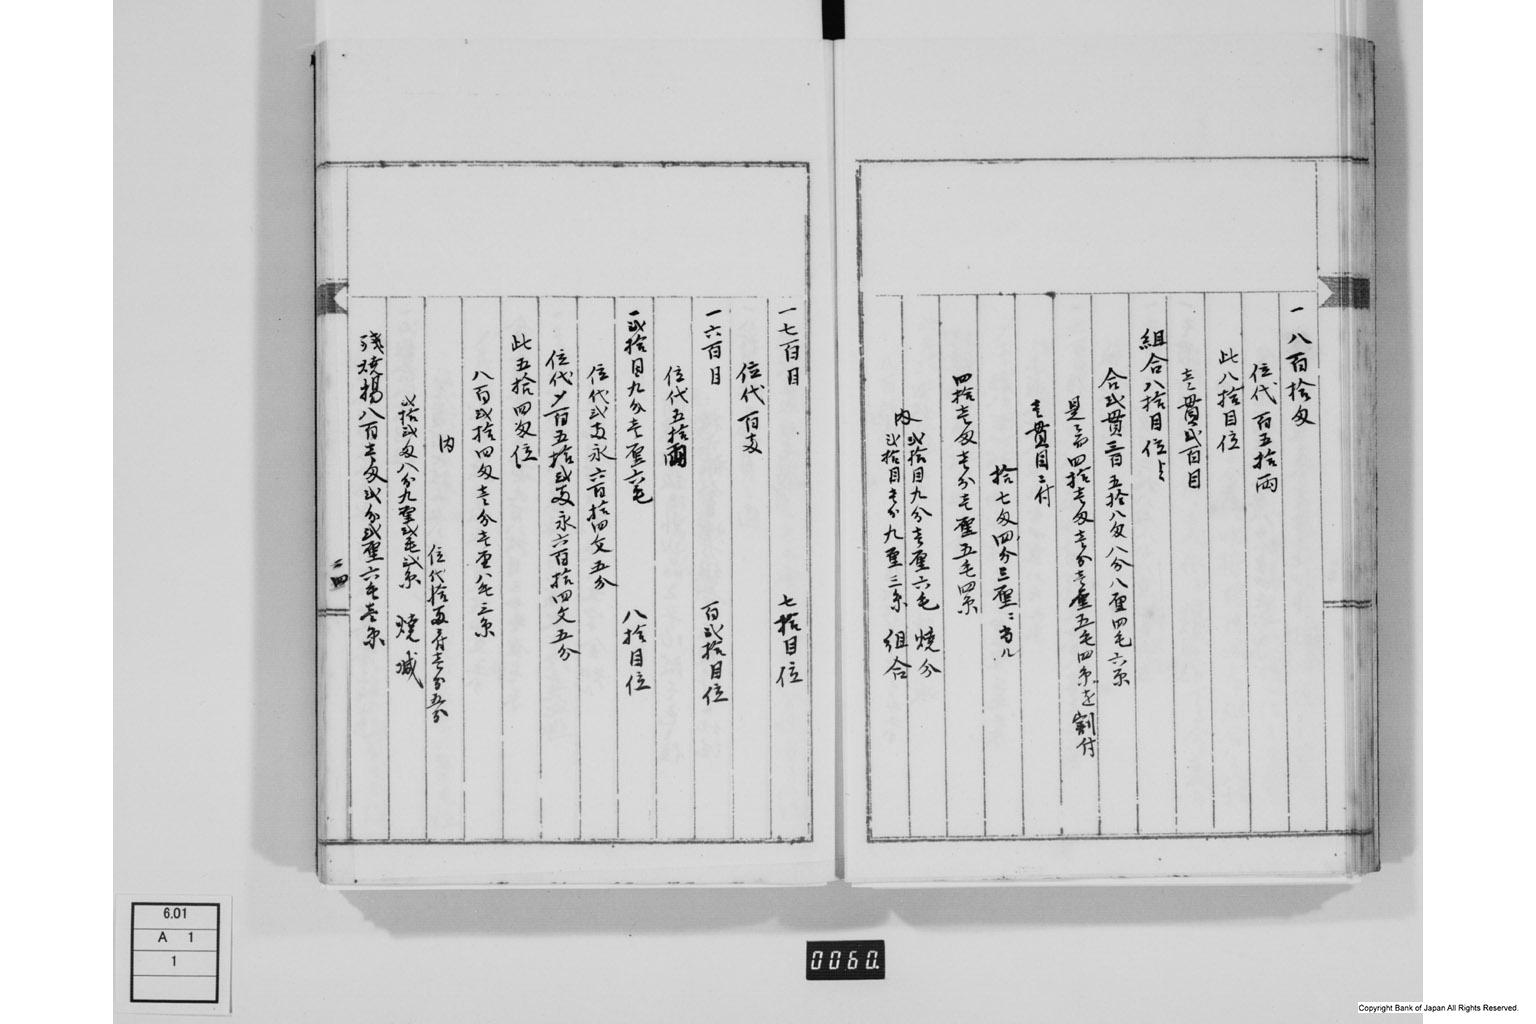 一八百拾匁
位代百五拾両
此八拾目位
壱貫弐百目
組合八拾目位ゟ
合弐貫三百五拾八匁八分八厘四毛六糸
是ニ而四拾壱匁壱分壱厘五毛四糸を割付
壱貫目ニ付
拾七匁四分三厘ニ当ル
四拾壱匁壱分壱厘五毛四糸
内
弐拾目九分壱厘六毛 焼分
弐拾目壱分九厘三糸 組合
一七百目 七拾目位
位代百両
一六百目 百弐拾目位
位代五拾両
一弐拾目九分壱厘六毛 八拾目位
位代弐両永六百拾四文五分
位代〆百五拾弐両永六百拾四文五分
此五拾四匁位
八百弐拾四匁壱分壱厘八毛三糸
内
位代拾両ニ付壱分五分
弐拾弐匁八分九厘弐毛弐糸 焼減
残焼揚八百壱匁弐分弐厘六毛壱糸
二四
6.01
A 1
1
0060.
Copyright Bank of Japan All Rights Reserved.